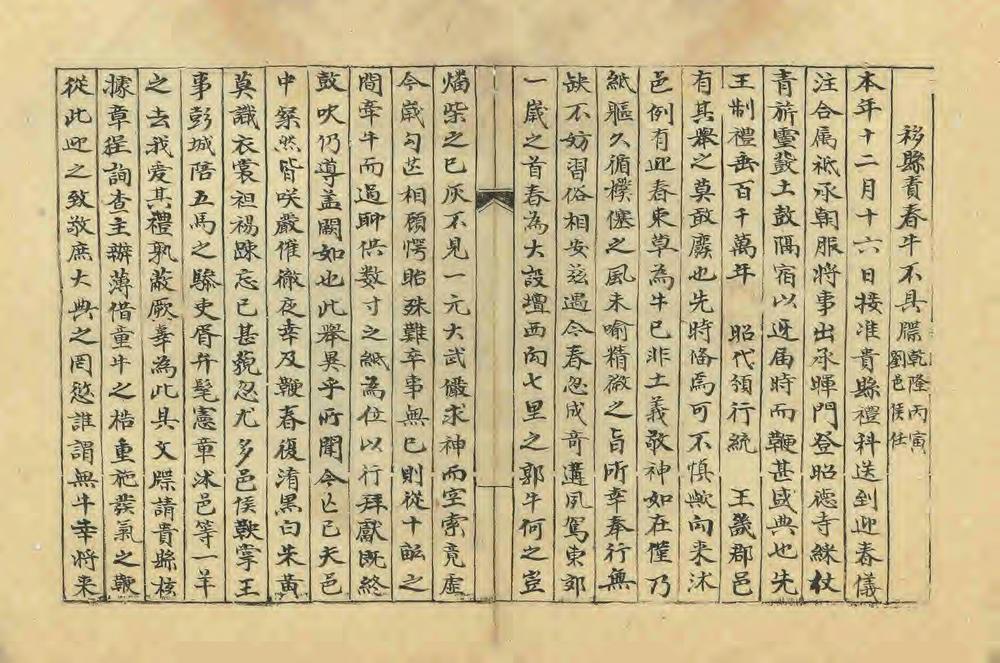 移縣責春牛不具牒乾隆丙寅
劉邑侯任
本年十二月十六日接准貴縣禮科送到迎春儀
注合属祗承朝服將事出承暉門登昭德寺綵仗
青旂靈鼗土鼓隔宿以迓届時而鞭甚盛典也先
王制禮垂百千萬年 昭代頒行統 王畿郡邑
有其舉之莫敢廢也先時偹焉可不慎歟向來沐
邑例有迎春束草為牛已非土義敬神如在僅乃
紙軀久循樸僿之風未喻精微之旨所幸奉行無
缺不妨習俗相安兹遇今春忽成奇遘夙駕東郊
一歲之首春為大設壇西向七里之郭牛何之豈
燔柴之已灰不見一元大武儼求神而空索竟虛
今歲勾芒相顧愕眙殊難卒事無已則從十齣之
間牽牛而過聊供数寸之紙為位以行拜獻既終
鼓吹仍導盖闕如也此舉異乎所聞今亡已夫邑
中粲然皆咲嚴催徹夜幸及鞭春復淆黑白朱黃
莫識衣裳袒裼踈忘已甚藐忽尤多邑侯鞅掌王
事彭城陪五馬之驂吏胥弁髦憲章沭邑等一羊
之去我爱其禮孰蔽厥辜為此具文牒請貴縣核
據章程詢查主辦薄借童牛之梏重施發氣之鞭
從此迎之致敬庶大典之罔愆誰謂無牛幸將来